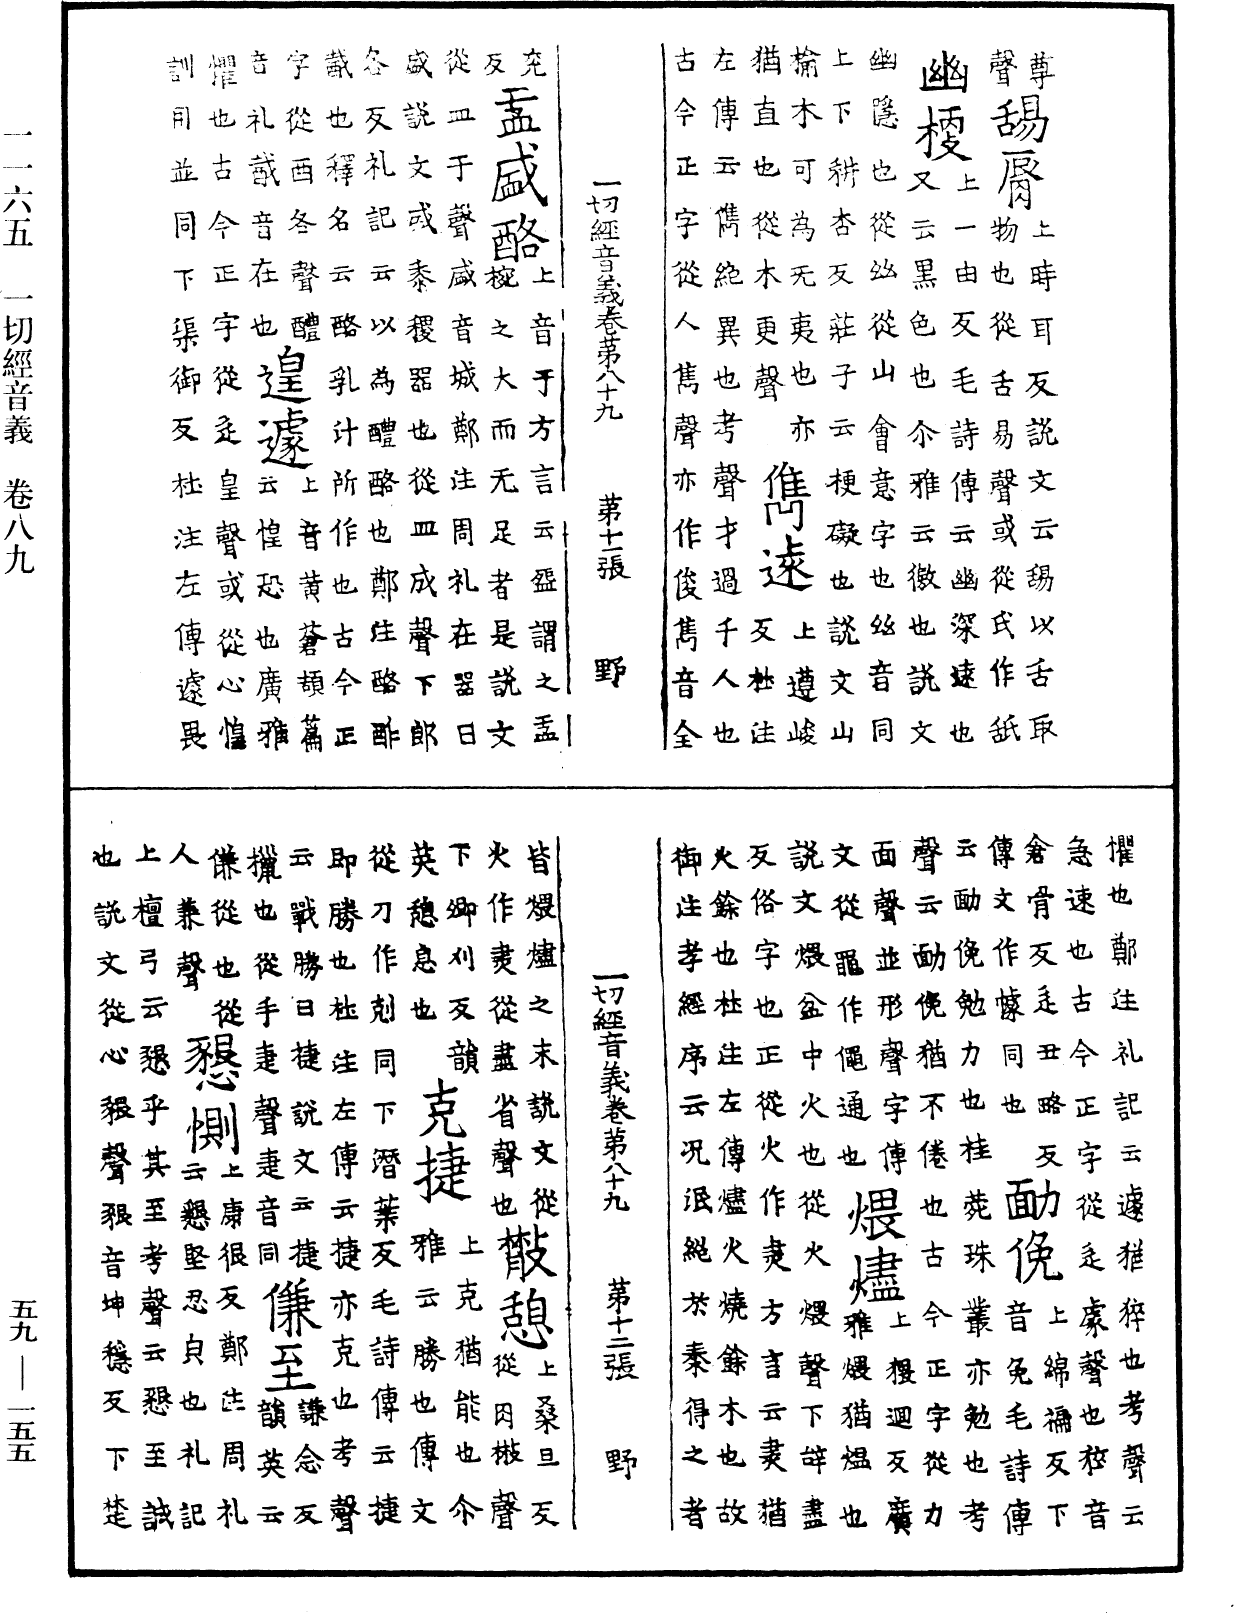 一一六五　一切經音義　卷八九
尊
聲　舓脣　上時耳反說文云舓以舌取
物也從舌易聲或從氏作舐
幽梗　上一由反毛詩傳云幽深遠也
又云黑色也尒雅云微也說文
幽隱也從𢆶從山會意字也𢆶音同
上下耕杏反莊子云梗礙也說文山
榆木可為无夷也亦　儁遠　上遵峻
猶直也從木更聲　反杜注
左傳云儁絕異也考聲才過千人也
古今正字從人雋聲亦作俊雋音全
一切經音義卷第八十九　第十一張　野
兖
反　盂盛酪　上音于方言云盌謂之盂
椀之大而无足者是說文
從皿于聲盛音城鄭注周礼在器曰
盛說文或黍稷器也從皿成聲下郎
各反礼記云以為醴酪也鄭注酪酢
酨也釋名云酪乳汁所作也古今正
字從酉各聲醴　遑遽　上音黃蒼頡篇
音礼酨音在也　云惶恐也廣雅
懼也古今正字從辵皇聲或從心惶
訓用並同下渠御反杜注左傳遽畏
懼也鄭注礼記云遽猶猝也考聲云
急速也古今正字從辵豦聲也猝音
倉骨反辵丑略反　勔俛　上綿褊反下
傳文作懅同也　音免毛詩傳
云勔俛勉力也桂菀珠叢亦勉也考
聲云勔俛猶不倦也古今正字從力
面聲並形聲字傳　煨燼　上猥迴反廣
文從黽作僶通也　雅煨猶熅也
說文煨盆中火也從火煨聲下辝盡
反俗字也正從火作㶳方言云㶳猶
火餘也杜注左傳燼火燒餘木也故
御注孝經序云况泯絕於秦得之者
一切經音義卷第八十九　第十二張　野
皆煨燼之末說文從　㪚憩　上桑旦反
火作㶳從盡省聲也　從肉㪔聲
下卿刈反韻　克捷　上克猶能也尒
英憩息也　雅云勝也傳文
從刀作剋同下潛葉反毛詩傳云捷
即勝也杜注左傳云捷亦克也考聲
云戰勝曰捷說文云捷　傔至　謙念反
獵也從手疌聲疌音同　韻英云
傔從也從　懇惻　上康很反鄭注周礼
人兼聲　云懇堅忍貞也礼記
上檀弓云懇乎其至考聲云懇至誠
也說文從心貇聲貇音坤穩反下楚
五九—一五五